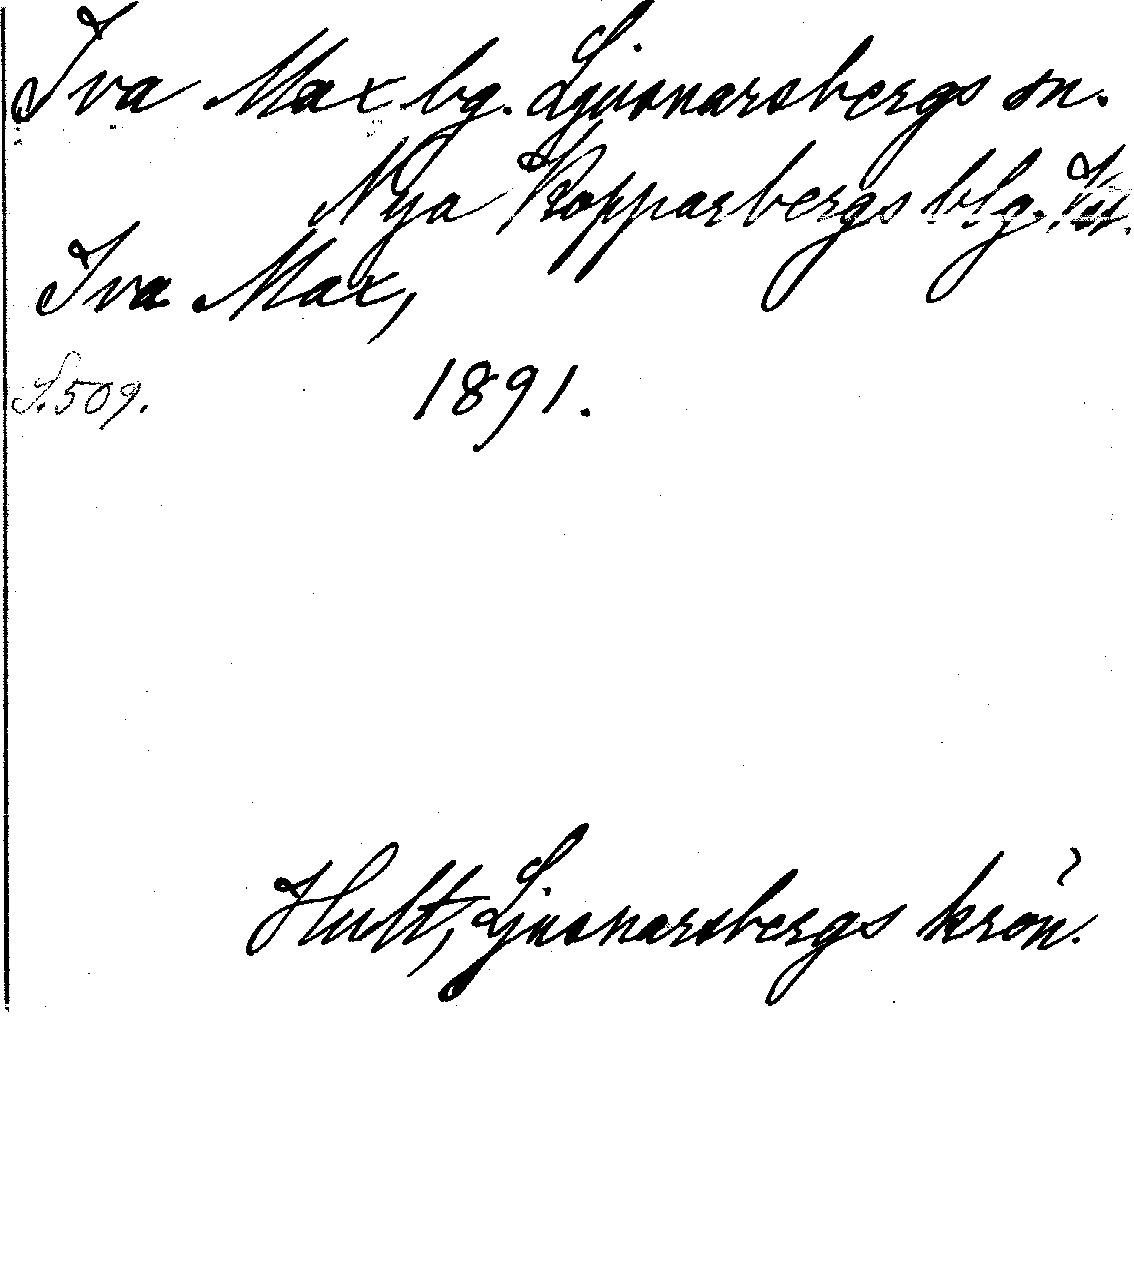 Iva Max bg. Ljusnarsbergs sn.
Nya Kopparbergs blg.
Iva Max,
S. 509.
1891.
Hult, Ljusnarsbergs krön.